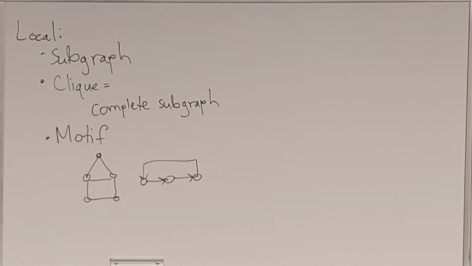 Local:
· Subgraph
· Clique =
complete subgraph
· Motif